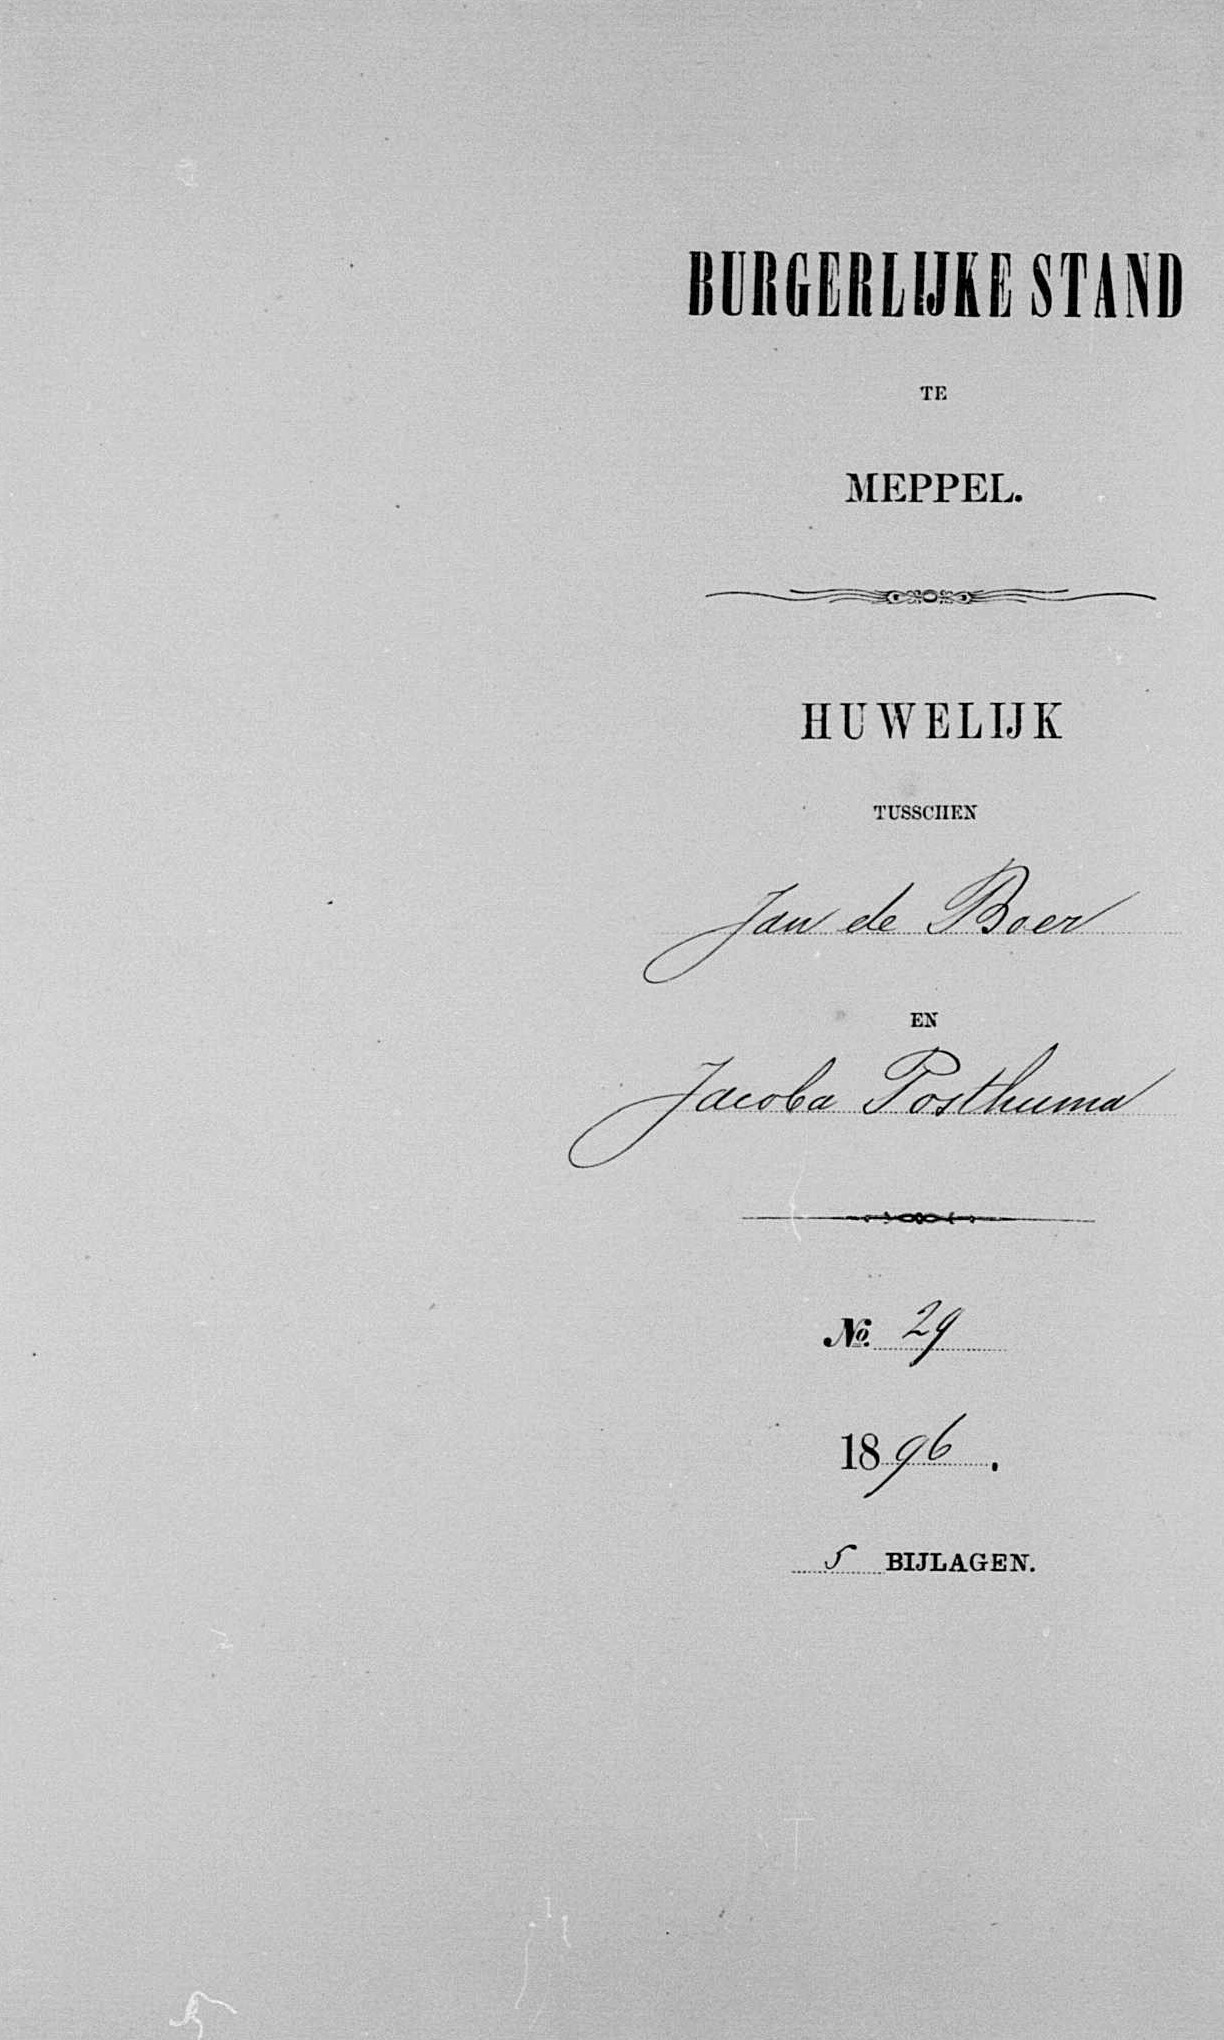 BURGERLIJKE STAND
TE
MEPPEL.
HUWELIJK
TUSSCHEN
Jan de Boer
EN
Jacoba Posthuma
No. 29
1896.
5 BIJLAGEN.